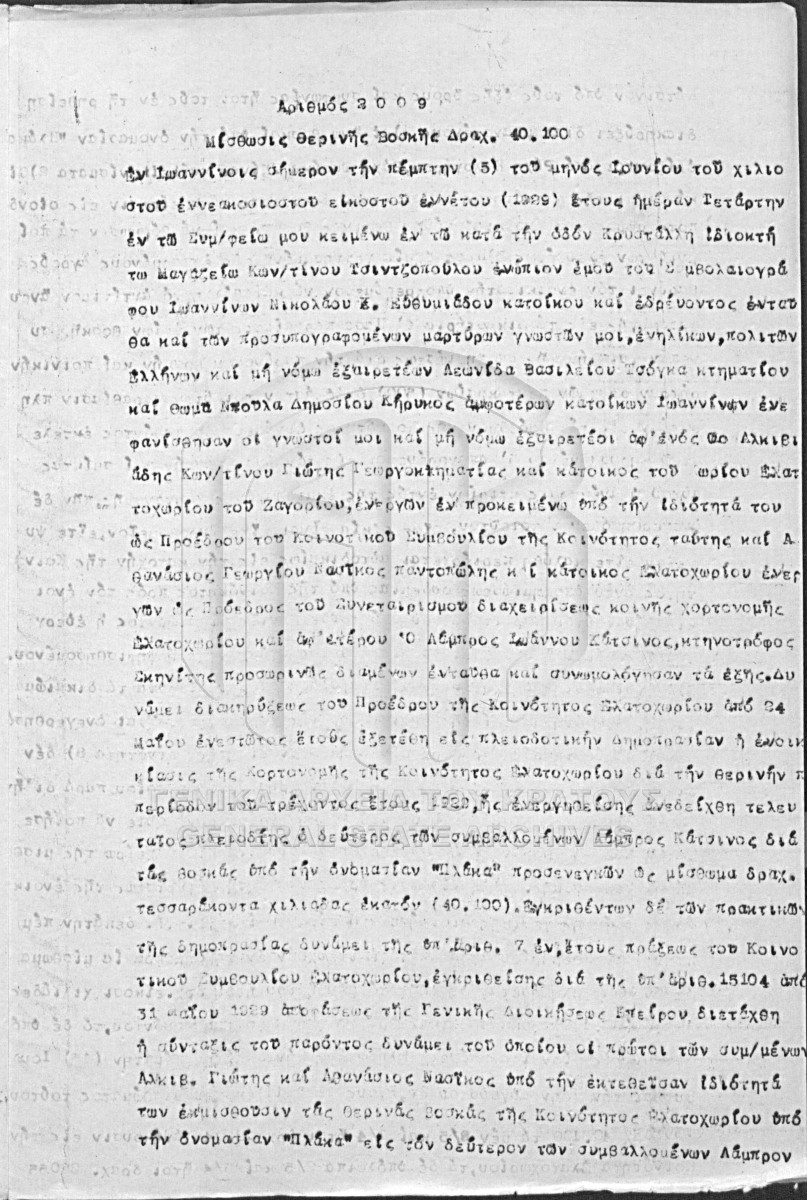 Αριθμός 2009
Μίσθωσις Θερινῆς Βοσκῆς Δραχ. 40.100
Ἐν Ἰωαννίνοις σήμερον τήν πέμπτην (5) τοῦ μηνός Ἰουνίου τοῦ χιλιο
στοῦ ἐννεακοσιοστοῦ εἰκοστοῦ ἐννέτου (1929) ἔτους ἡμέραν Τετάρτην
ἐν τῶ Συμ/φείω μου κειμένω ἐν τῶ κατά τήν ὁδόν Κρυστάλλη ἰδιοκτή
τω Μαγαζείω Κων/τίνου Τσιντζοπούλου ἐνώπιον ἐμοῦ τοῦ Συμβολαιογρά
φου Ἰωαννίνων Νικολάου Ζ. Εὐθυμιάδου κατοίκου καί ἑδρέυοντος ἐνταῦ
θα καί τῶν προσυπογραφομένων μαρτύρων γνωστῶν μοι,ἐνηλίκων,πολιτῶν
Ἑλλήνων καί μή νόμω ἐξαιρετέων Λεωνίδα Βασιλείου Τσόγκα κτηματίου
καί Θωμᾶ Μπούλα Δημοσίου Κήρυκος ἀμφοτέρων κατοίκων Ἰωαννίνων ἐνε
φανίσθησαν οἱ γνωστοί μοι καί μή νόμω ἐξαιρετέοι ἀφ'ἑνός ὁ Ἀλκιβι
άδης Κων/τίνου Γιώτης Γεωργοκτηματίας καί κάτοικος τοῦ χωρίου Ἐλατ
τοχωρίου τοῦ Ζαγορίου,ἐνεργῶν ἐν προκειμένω ὑπό τήν ἰδιότητά του
ὡς Προέδρου τοῦ Κοινοτικοῦ Συμβουλίου τῆς Κοινότητος ταύτης καί Ἀ
θανάσιος Γεωργίου Νασῖκος παντοπώλης καί κάτοικος Ἐλατοχωρίου ἐνερ
γῶν ὡς Πρόεδρος τοῦ Συνεταιρισμοῦ διαχειρίσεως κοινῆς χορτονομῆς
Ἐλατοχωρίου καί ἀφ'ἑτέρου Ὁ Λάμπρος Ἰωάννου Κάτσινος,κτηνοτρόφος
Σκηνίτης προσωρινῶς διαμένων ἐνταῦθα καί συνωμολόγησαν τά ἐξῆς.Δυ
νάμει διακηρύξεως τοῦ Προέδρου τῆς Κοινότητος Ἐλατοχωρίου ἀπό 24
Μαΐου ἐνεστῶτος ἔτους ἐξετέθη εἰς πλειοδοτικήν Δημοπρασίαν ἡ ἐνοικ
κίασις τῆς Χορτονομῆς τῆς Κοινότητος Ἐλατοχωρίου διά τήν θερινήν π
περίοδον τοῦ τρέχοντος ἔτους 1929,ἧς ἐνεργηθείσης ἀνεδείχθη τελευ
ταῖος πλειοδότης ὁ δεύτερος τῶν συμβαλλομένων Λάμπρος Κάτσινος διά
τάς Βοσκάς ὑπό τήν ὀνομασίαν "Πλάκα" προσενεγκών ὡς μίσθωμα δραχ.
τεσσαράκοντα χιλιάδας ἑκατόν (40.100).Ἐγκριθέντων δέ τῶν πρακτικῶν
τῆς δημοπρασίας δυνάμει τῆς ὑπ'ἀριθ. 7 ἐν,ἔτους πράξεως τοῦ Κοινο
τικοῦ Συμβουλίου Ἐλατοχωρίου,ἐγκριθείσης διά τῆς ὑπ'ἀριθ.15104 ἀπό
31 Μαΐου 1929 ἀποφάσεως τῆς Γενικῆς Διοικήσεως Ἠπείρου διετάχθη
ἡ σύνταξις τοῦ παρόντος δυνάμει τοῦ ὁποίου οἱ πρῶτοι τῶν συμ/μένων
Ἀλκιβ. Γιώτης καί Ἀθανάσιος Νασῖκος ὑπό τήν ἐκτεθεῖσαν ἰδιότητά
των ἐκμισθοῦσιν τάς θερινάς Βοσκάς τῆς Κοινότητος Ἐλατοχωρίου ὑπό
τήν ὀνομασίαν "Πλάκα" εἰς τόν δεύτερον τῶν συμβαλλομένων Λάμπρον
ΓΕΝΙΚΑ ΑΡΧΕΙΑ ΤΟΥ ΚΡΑΤΟΥΣ
GENERAL STATE ARCHIVES